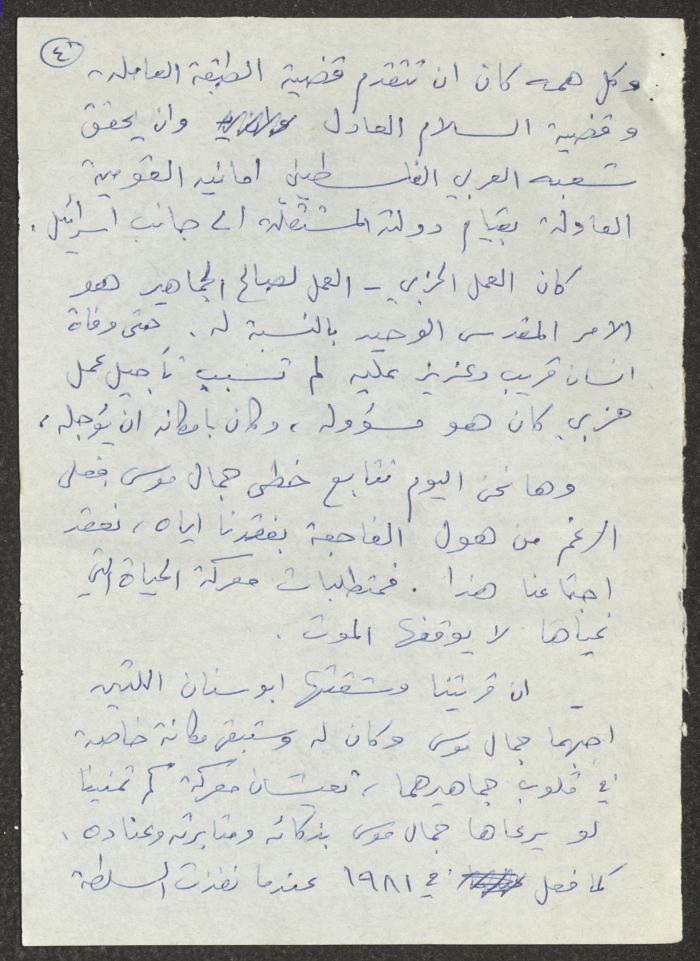 ٤
وكل همه كان ان تتقدم قضية الطبقة العاملة،
وقضية السلام العادل وان يحقق
شعبه العربي الفلسطيني امانيه القومية
العادلة بقيام دولته المستقلة الى جانب اسرائيل.
كان العمل الحزبي - العمل لصالح الجماهير هو
الامر المقدس الوحيد بالنسبة له. حتى وفاة
انسان قريب وعزيز عليه لم تسبب تأجيل عمل
حزبي كان هو مسؤوله، وكان بامكانه ان يؤجله،
وها نحن اليوم نتابع خطى جمال موسى فعلى
الرغم من هول الفاجعة بفقدنا اياه، نعقد
اجتماعنا هذا. فمتطلبات معركة الحياة التي
نحياها لا يوقفها الموت.
- ان قريتنا وشقيقتها ابوسنان اللتين
احبهما جمال موسى وكان له وستبقى مكانة خاصة
في قلوب جماهيرهما، تعيشان معركة كم تمنينا
لو يرعاها جمال موسى بذكائه ومثابرته وعناده،
كما فعل في ١٩٨١ عندما نفذت السلطة